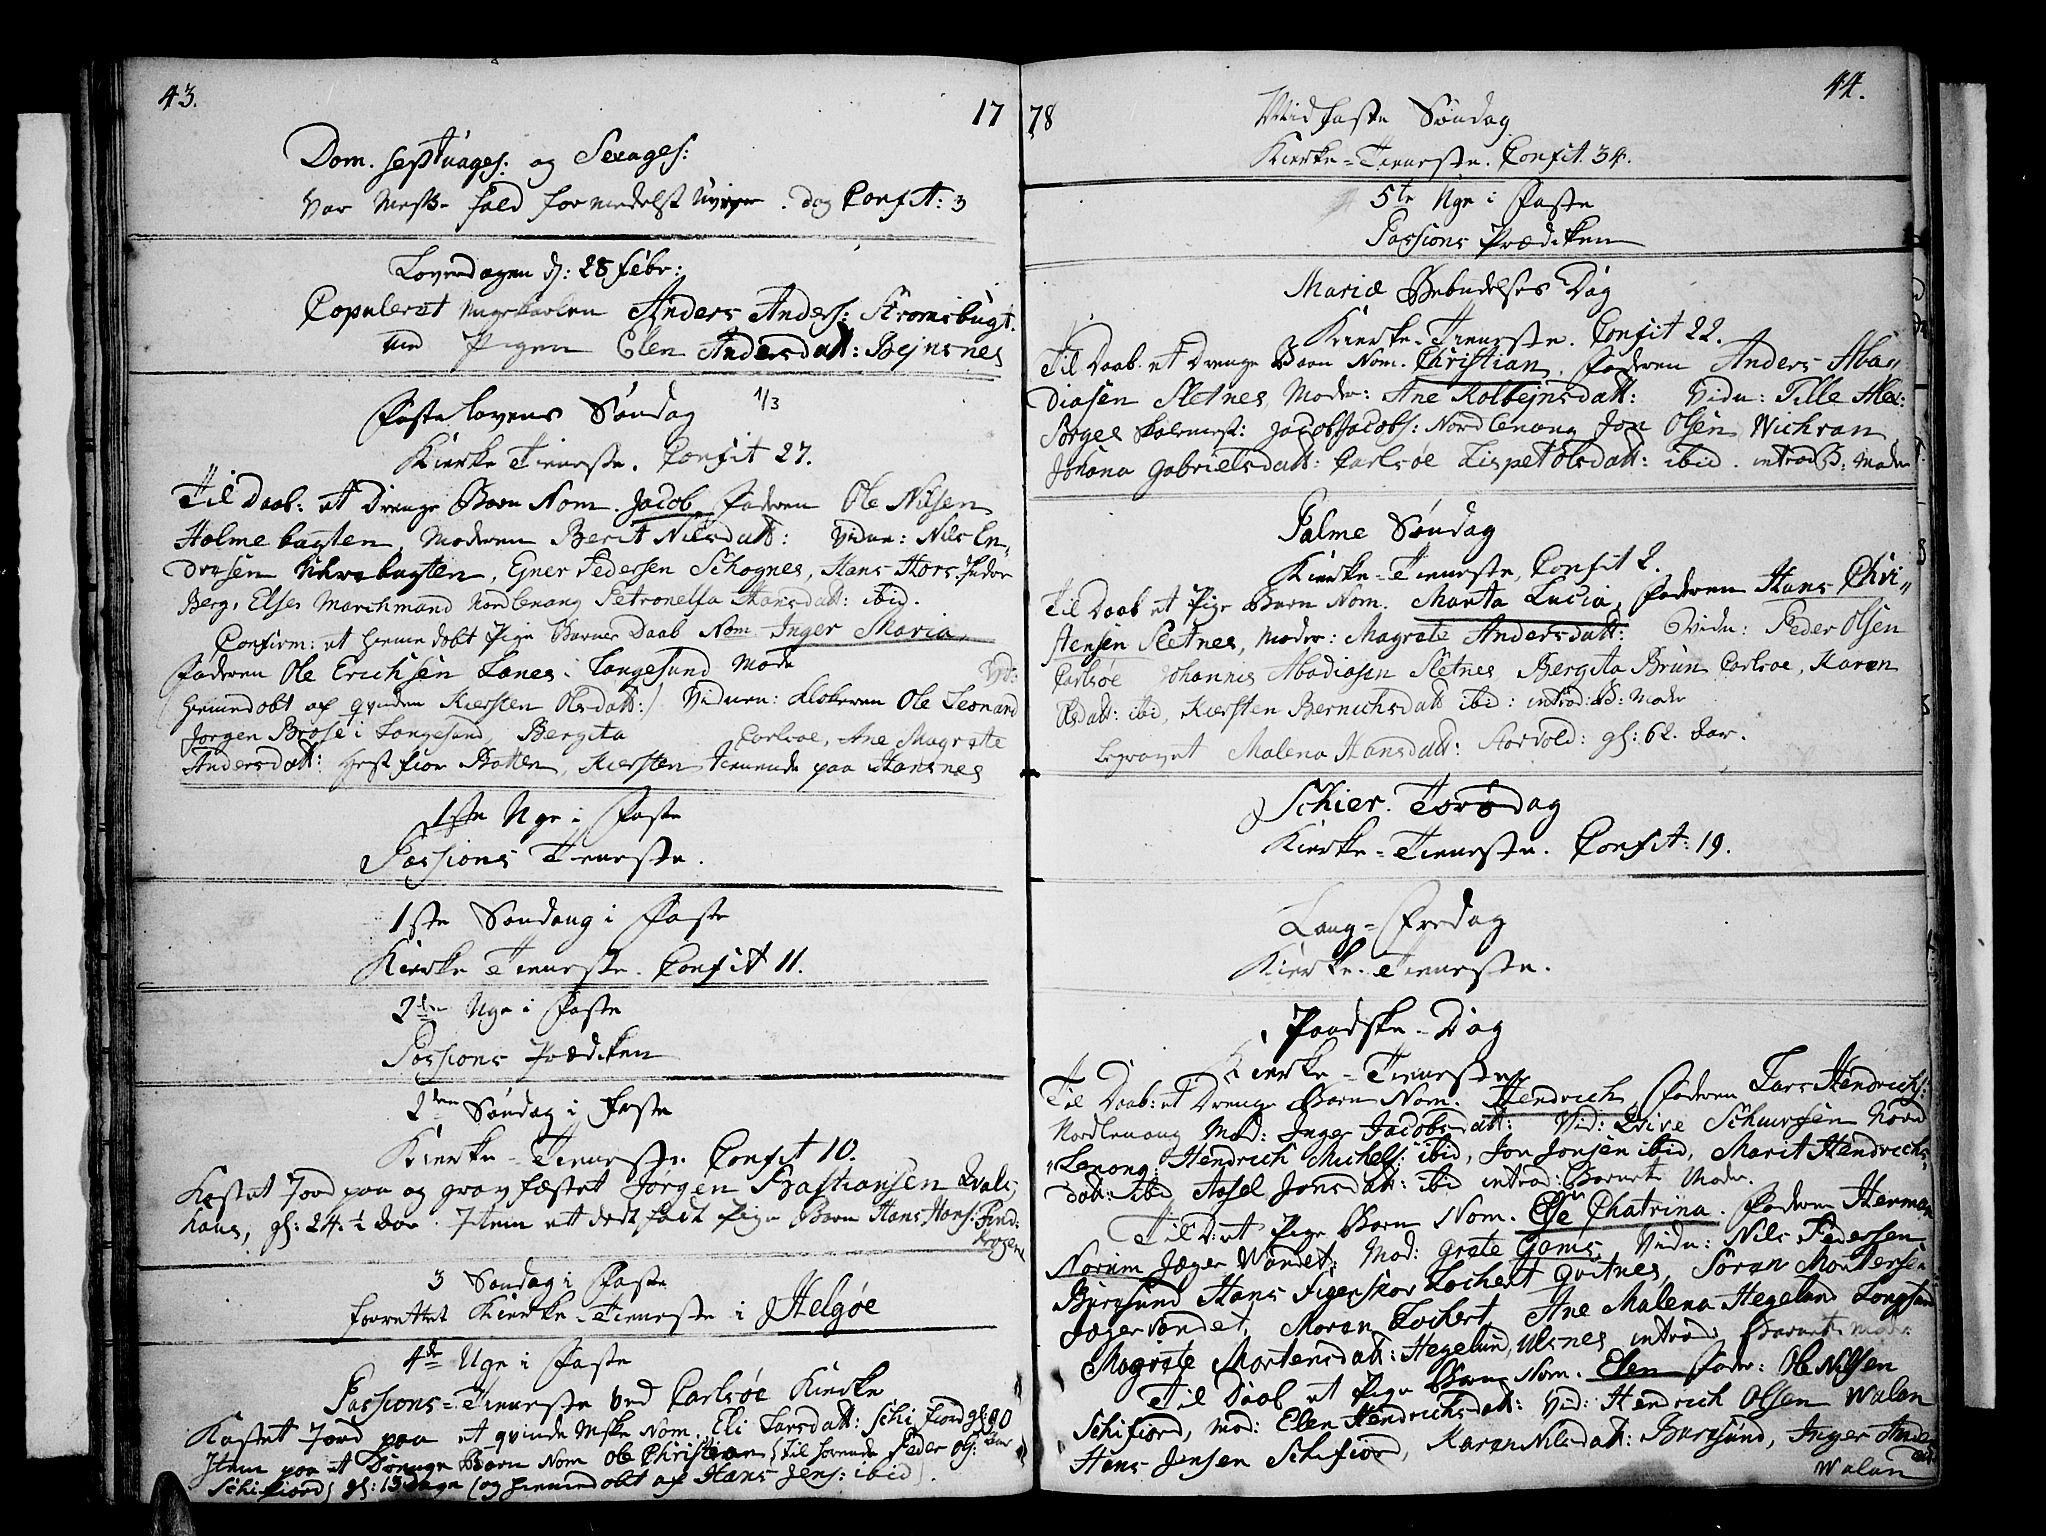 43.
17
Dom. Septuages: og Sexages:
Var Messe-fald formedelst Uveyr. dog Confit: 3
Loverdagen d: 28 febr:
Copuleret Ungekarlen Anders Anders: Stromsbugt.
med Pigen Elen Andersdatt: Bejnsnes
Fastelavens Søndag 1/3
Kierke Tieneste. Confit 27.
Til Daab: et Drenge Barn Nom. Jacob Faderen Ole Nilsen
Holmebugten, Moderen Berit Nilsdatt: Vidne: Nils En„
dresen bugten, Ejner Pedersen Schognes, Hans Hors.
Berg. Else Marchmand Nordlenang Petronella Hansdatt: ibid.
Confirm: et hiemmedøbt Pige Barnes Daab Nom. Inger Maria
Faderen Ole Erichsen Lanes. Langesund Mode
hiemdøbt af qvinden Kiersten Olsdatt:/ Vidnen: Klokeren Ole Leonard
Jørgen Brose i Langesund, Bergita Carlsøe, Ane Magrete
Andersdatt: Hestfior Botten, Kiersten tienende paa Hansnes
1ste Uge i Faste
Passions Tieneste.
1ste Søndag i Faste
Kierke Tieneste. Confit 11.
2den Uge i Faste
Passions Prædiken
2den Søndag i Faste
Kierke-Tieneste Confit 10.
Kastet Jord paa og gravfæstet Jørgen Bastiansen Qvals„
houg, gl: 24. ½ Aar. Item et dødfødt Pige Barn Hans Hans: Find:
krogen
3 Søndag i Faste
forrettet Kierke-Tieneste i Helgøe
4de Uge i Faste
Passions-Tieneste ved Carlsøe Kierke
Kastet Jord paa et qvinde Mske Nom. Eli Larsdatt: Schifiord gl: 90
Aar
Item paa et Drenge Barn Nom Ole Christian (tilhørende Peder Ols:
Schifiord) gl: 13 dage (og hiemmedøbt af Hans Jens: ibid).
78
44.
Midfaste Søndag
Kierke-Tieneste. Confit. 34.
5te Uge i Faste
Passions Prædiken
Mariæ Bebudelses Dag
Kierke-Tieneste. Confit 22.
Til Daab et Drenge Barn Nom. Christian, Faderen Anders Aba„
diasen Sletnes, Moder: Ane Kolbejnsdatt: Vidn: Tille Alex:
Borges Skolemest: Jacob Jacobs: Nordlenang Jon Olsen Wichran
Johana Gabrielsdatt: Carlsøe Lispet Olsdatt: ibid. introd B: Moder
Palme Søndag
Kierke-Tieneste, Confit 2.
Til Daab et Pige Barn Nom. Marta Lucia, Faderen Hans Chri„
stensen Sletnes, Moder: Magrete Andersdatt: Vidn: Peder Olsen
Carlsøe Johannis Abadiasen Sletnes, Bergita Brun Carlsøe, Karen
Olsdatt: ibid, Kiersten Bernichsdatt ibid: introd: B: Moder
begravet Malena Hansdatt: Storvold: gl: 62. Aar.
Schier-Torsdag
Kierke-Tieneste. Confit: 19.
Lang-Fredag
Kierke-Tieneste.
Paadske-Dag
Kierke-Tieneste
Til Daab: et Drenge Barn Nom. Hendrich, Faderen Lars Hendrichs:
Nordlenang Mod: Inger Jacobsdatt: Vid: Schursen Nord
„Lenang: Hendrich Michels: ibid, Jon Jonsen ibid, Marit Hendrichs„
dat: ibid, Aasel Jonsdatt: ibid introd: Barnets Moder.
Til D: et Pige Barn Nom. Else Chatrina. Faderen Herman
Norum Jæger Vandet, Mod: Grete Gams, Vidn: Nils Pedersen
Burøsund Hans Figenskov Lockert Qvitnes, Søran Mortensen
Jægervandet, Maran Lockert, Ane Malena Hegelund Langsund
Magrete Mortensdatt: Hegelund, Ulsnes introd: Barnets Moder
Til Daab et Pige Barn Nom. Elen Fader: Ole Nilsen
Schifiord, Mod: Elen Hendrichsdatt: Vid: Hendrich Olsen Walan
Hans Jensen Schifiord, Karen Nilsdatt: Burøsund, Inger Ander
Walan